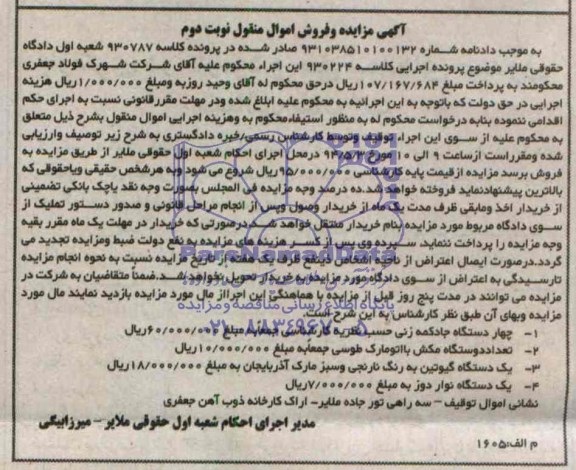 آگهی مزایده وفروش اموال منقول نوبت دوم
به موجب دادنامه شماره ۹۳۱۰۳۸۵۱۰۱۰۰۱۳۲ صادر شده در پرونده کلاسه ۹۳۰۷۸۷ شعبه اول دادگاه
حقوقی ملایر موضوع پرونده اجرایی کلاسه ۹۳۰۲۲۴ این اجراء محکوم علیه آقای شرکت شهرک فولاد جعفری
محکومند به پرداخت مبلغ ۱۰۷/۱۶۷/۶۸۴ریال درحق محکوم له آقای وحید روزبه ومبلغ ۱/۰۰۰/۰۰۰ریال هزینه
اجرایی در حق دولت که باتوجه به این اجرائیه به محکوم علیه ابلاغ شده ودر مهلت مقررقانونی نسبت به اجرای حکم
اقدامی ننموده بنابه درخواست محکوم له به منظور استیفاءمحکوم به وهزینه اجرایی اموال منقول بشرح ذیل متعلق
به محکوم علیه از سوی این اجراء توقیف وتوسط کارشناس رسمی/خبره دادگستری به شرح زیر توصیف وارزیابی
شده ومقرراست ازساعت ۹ الی ۱۰ مورخ درمحل اجرای احکام شعبه اول حقوقی ملایر از طریق مزایده به
فروش برسد مزایده ازقیمت پایه کارشناسی ۹۵/۰۰۰/۰۰۰ریال شروع می شود وبه هرشخص حقیقی ویاحقوقی که
بالاترین پیشنهادنماید فروخته خواهد شد.ده درصد وجه مزایده فی المجلس بصورت وجه نقد یاچک بانکی تضمینی
از خریدار اخذ ومابقی ظرف مدت یک ماه از خریدار وصول وپس از انجام مراحل قانونی و صدور دستور تملیک از
سوی دادگاه مربوط مورد مزایده بنام خریدار منتقل خواهد شد.درصورتی که خریدار در مهلت یک ماه مقرر بقیه
وجه مزایده را پرداخت ننماید، سپرده وی پس از کسر هزینه های مزایده به نفع دولت ضبط ومزایده تجدید می
گردد.درصورت ایصال اعتراض از ناحیه اشخاص ذینفع ظرف یک هفته از تاریخ مزایده نسبت به نحوه انجام مزایده
تارسیدگی به اعتراض از سوی دادگاه مورد مزایده به خریدار تحویل نخواهد شد.ضمناً متقاضیان به شرکت در
مزایده می توانند در مدت پنج روز قبل از مزایده با هماهنگی این اجرااز مال مورد مزایده بازدید نمایند مال مورد
مزایده وبهای آن طبق نظر کارشناس به این شرح است.
۱- چهار دستگاه جادکمه زنی حسب نظریه کارشناسی جمعاًبه مبلغ ۶۰/۰۰۰/۰۰۰ریال
۲- تعداددودستگاه مکش بااتومارک طوسی جمعاًبه مبلغ ۱۰/۰۰۰/۰۰۰ریال
۳- یک دستگاه گیوتین به رنگ نارنجی وسبز مارک آذربایجان به مبلغ ۱۸/۰۰۰/۰۰۰ریال
۴- یک دستگاه نوار دوز به مبلغ ۷/۰۰۰/۰۰۰ریال
نشانی اموال توقیف – سه راهی تور جاده ملایر– اراک کارخانه ذوب آهن جعفری
مدیر اجرای احکام شعبه اول حقوقی ملایر – میرزابیگی
م الف:۱۶۰۵
پایگاه اطلاع رسانی مناقصه ومزایده